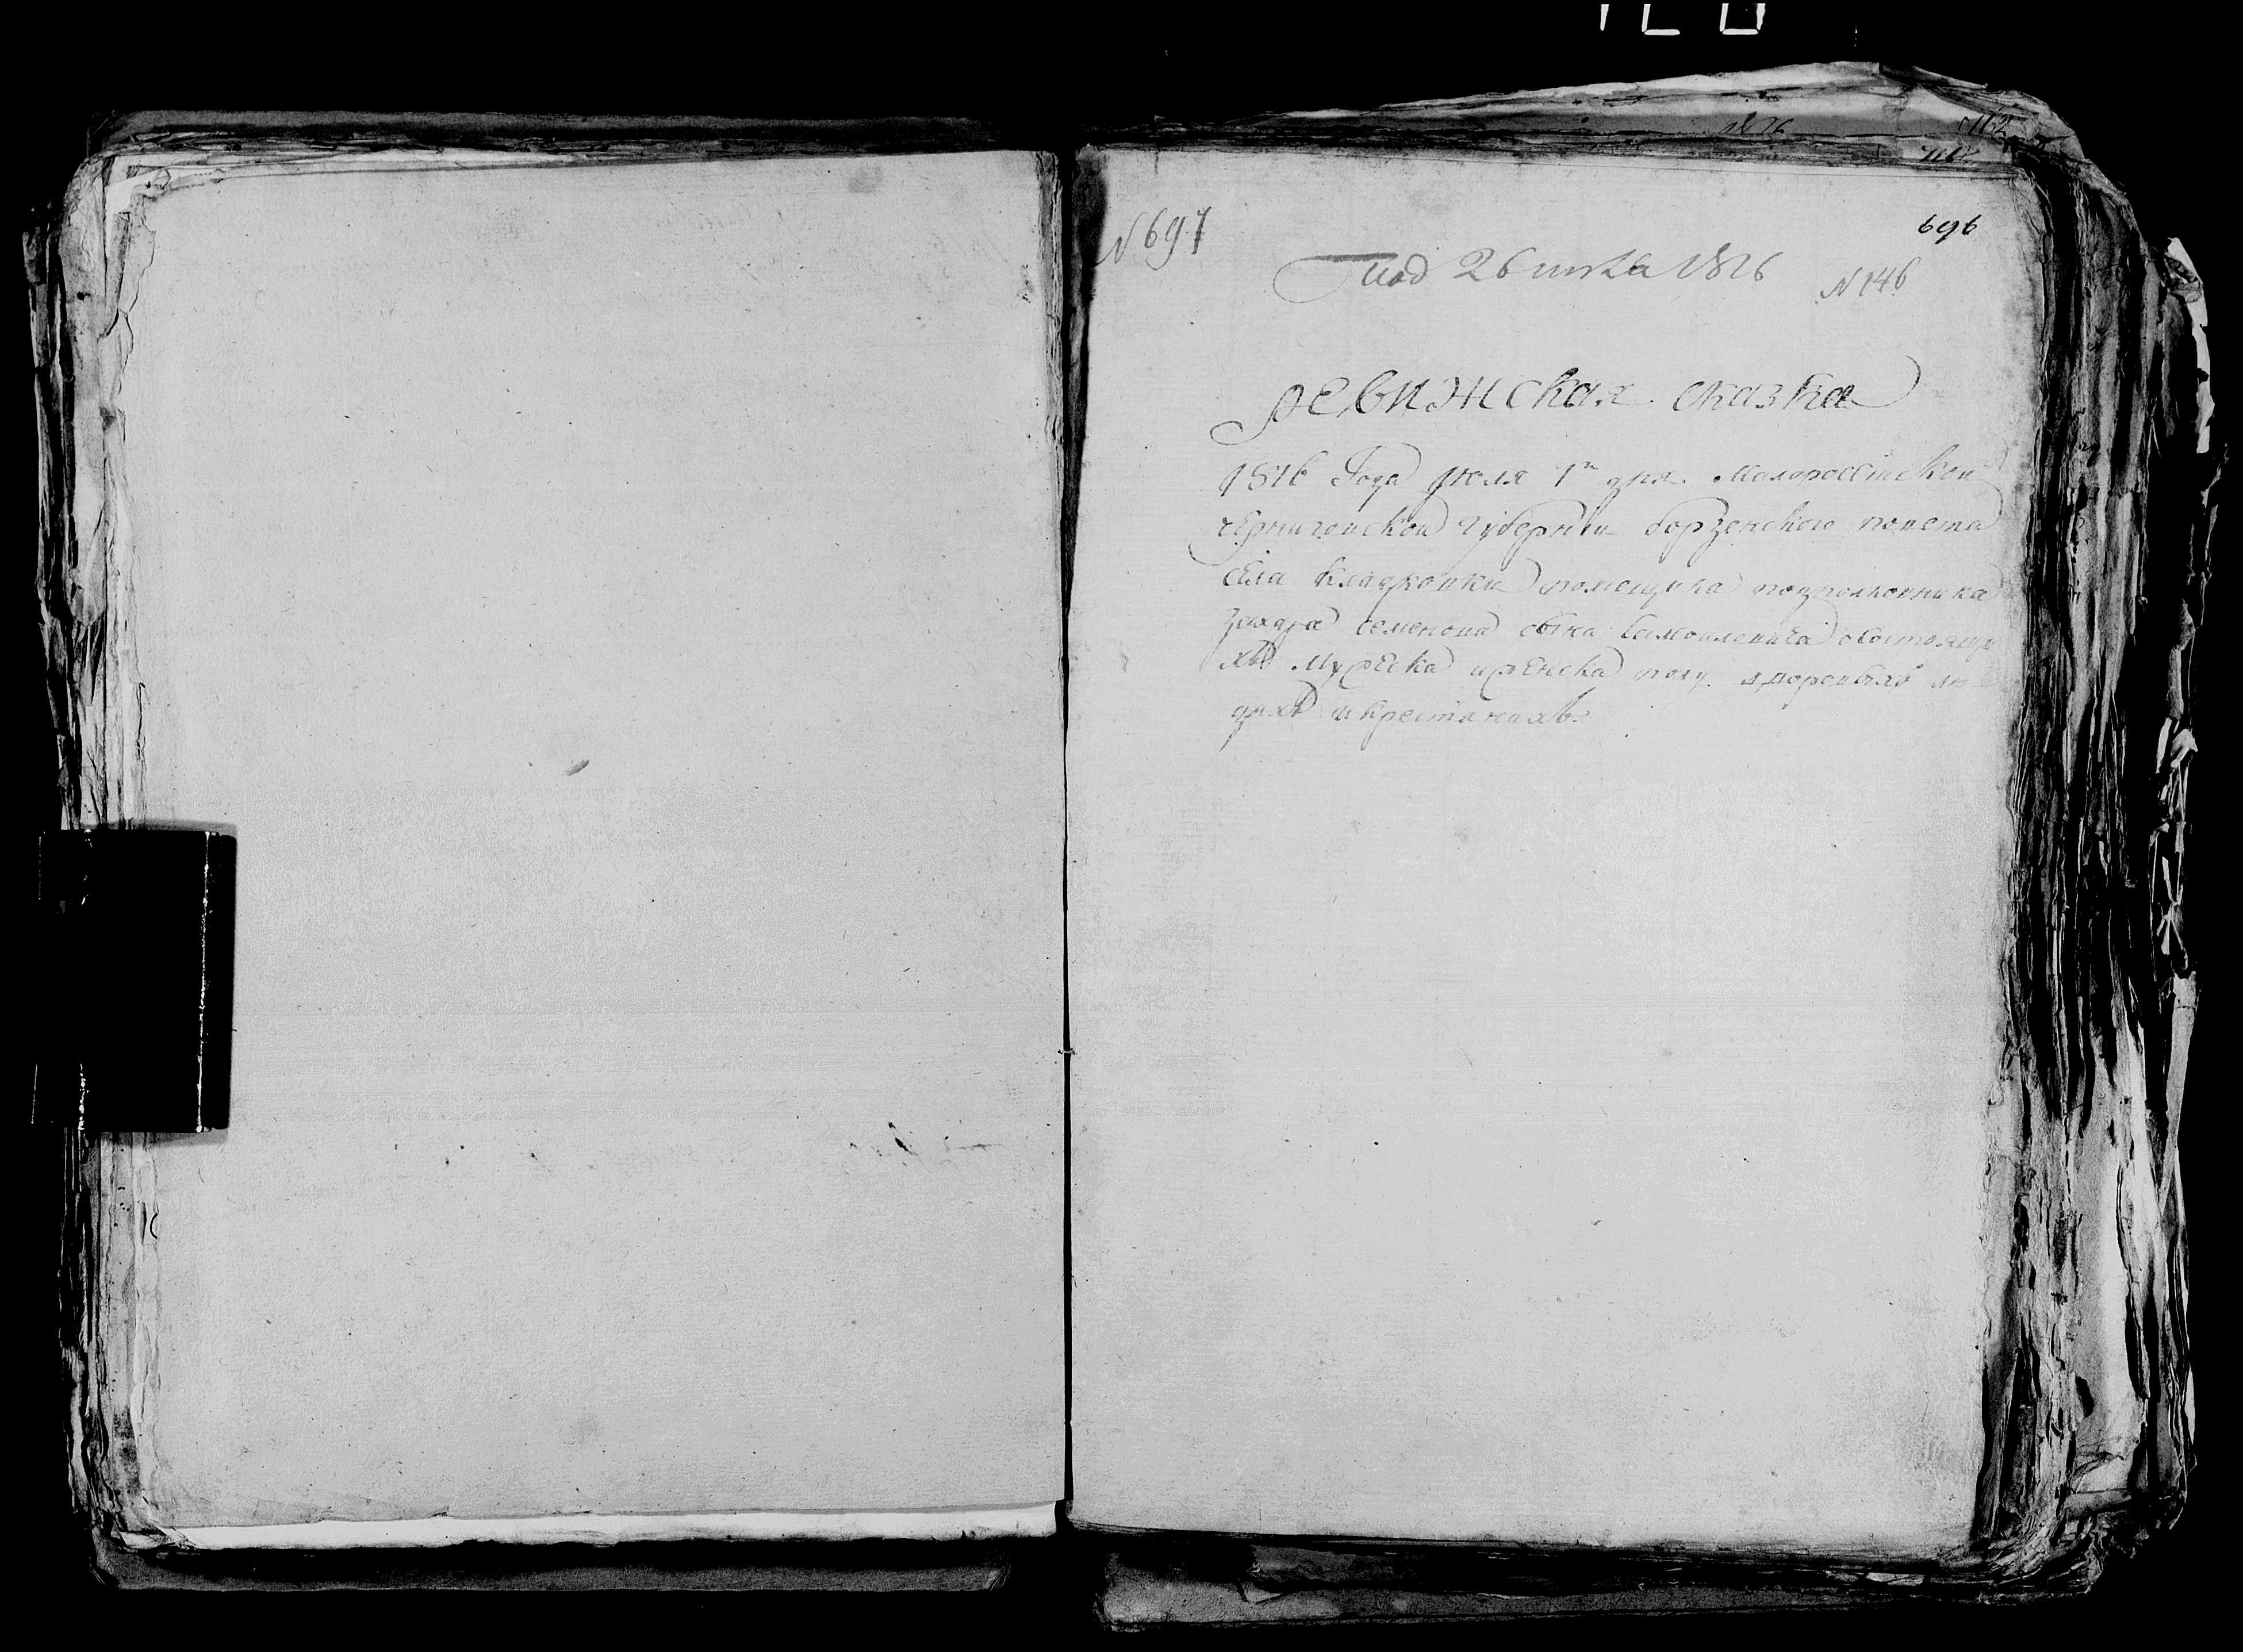 696
N 697
Под 26 июля 1816
N 146
Ревижская сказка
1816 Года июля 1го дня Малороссійской
черниговской губерніи борзенского повета
села кладковки помещика подполковника
захара семенова сына Самойловича осостоящи
хъ мужеска иженска полу дворовыхъ лю
дяхъ икрестянахъ